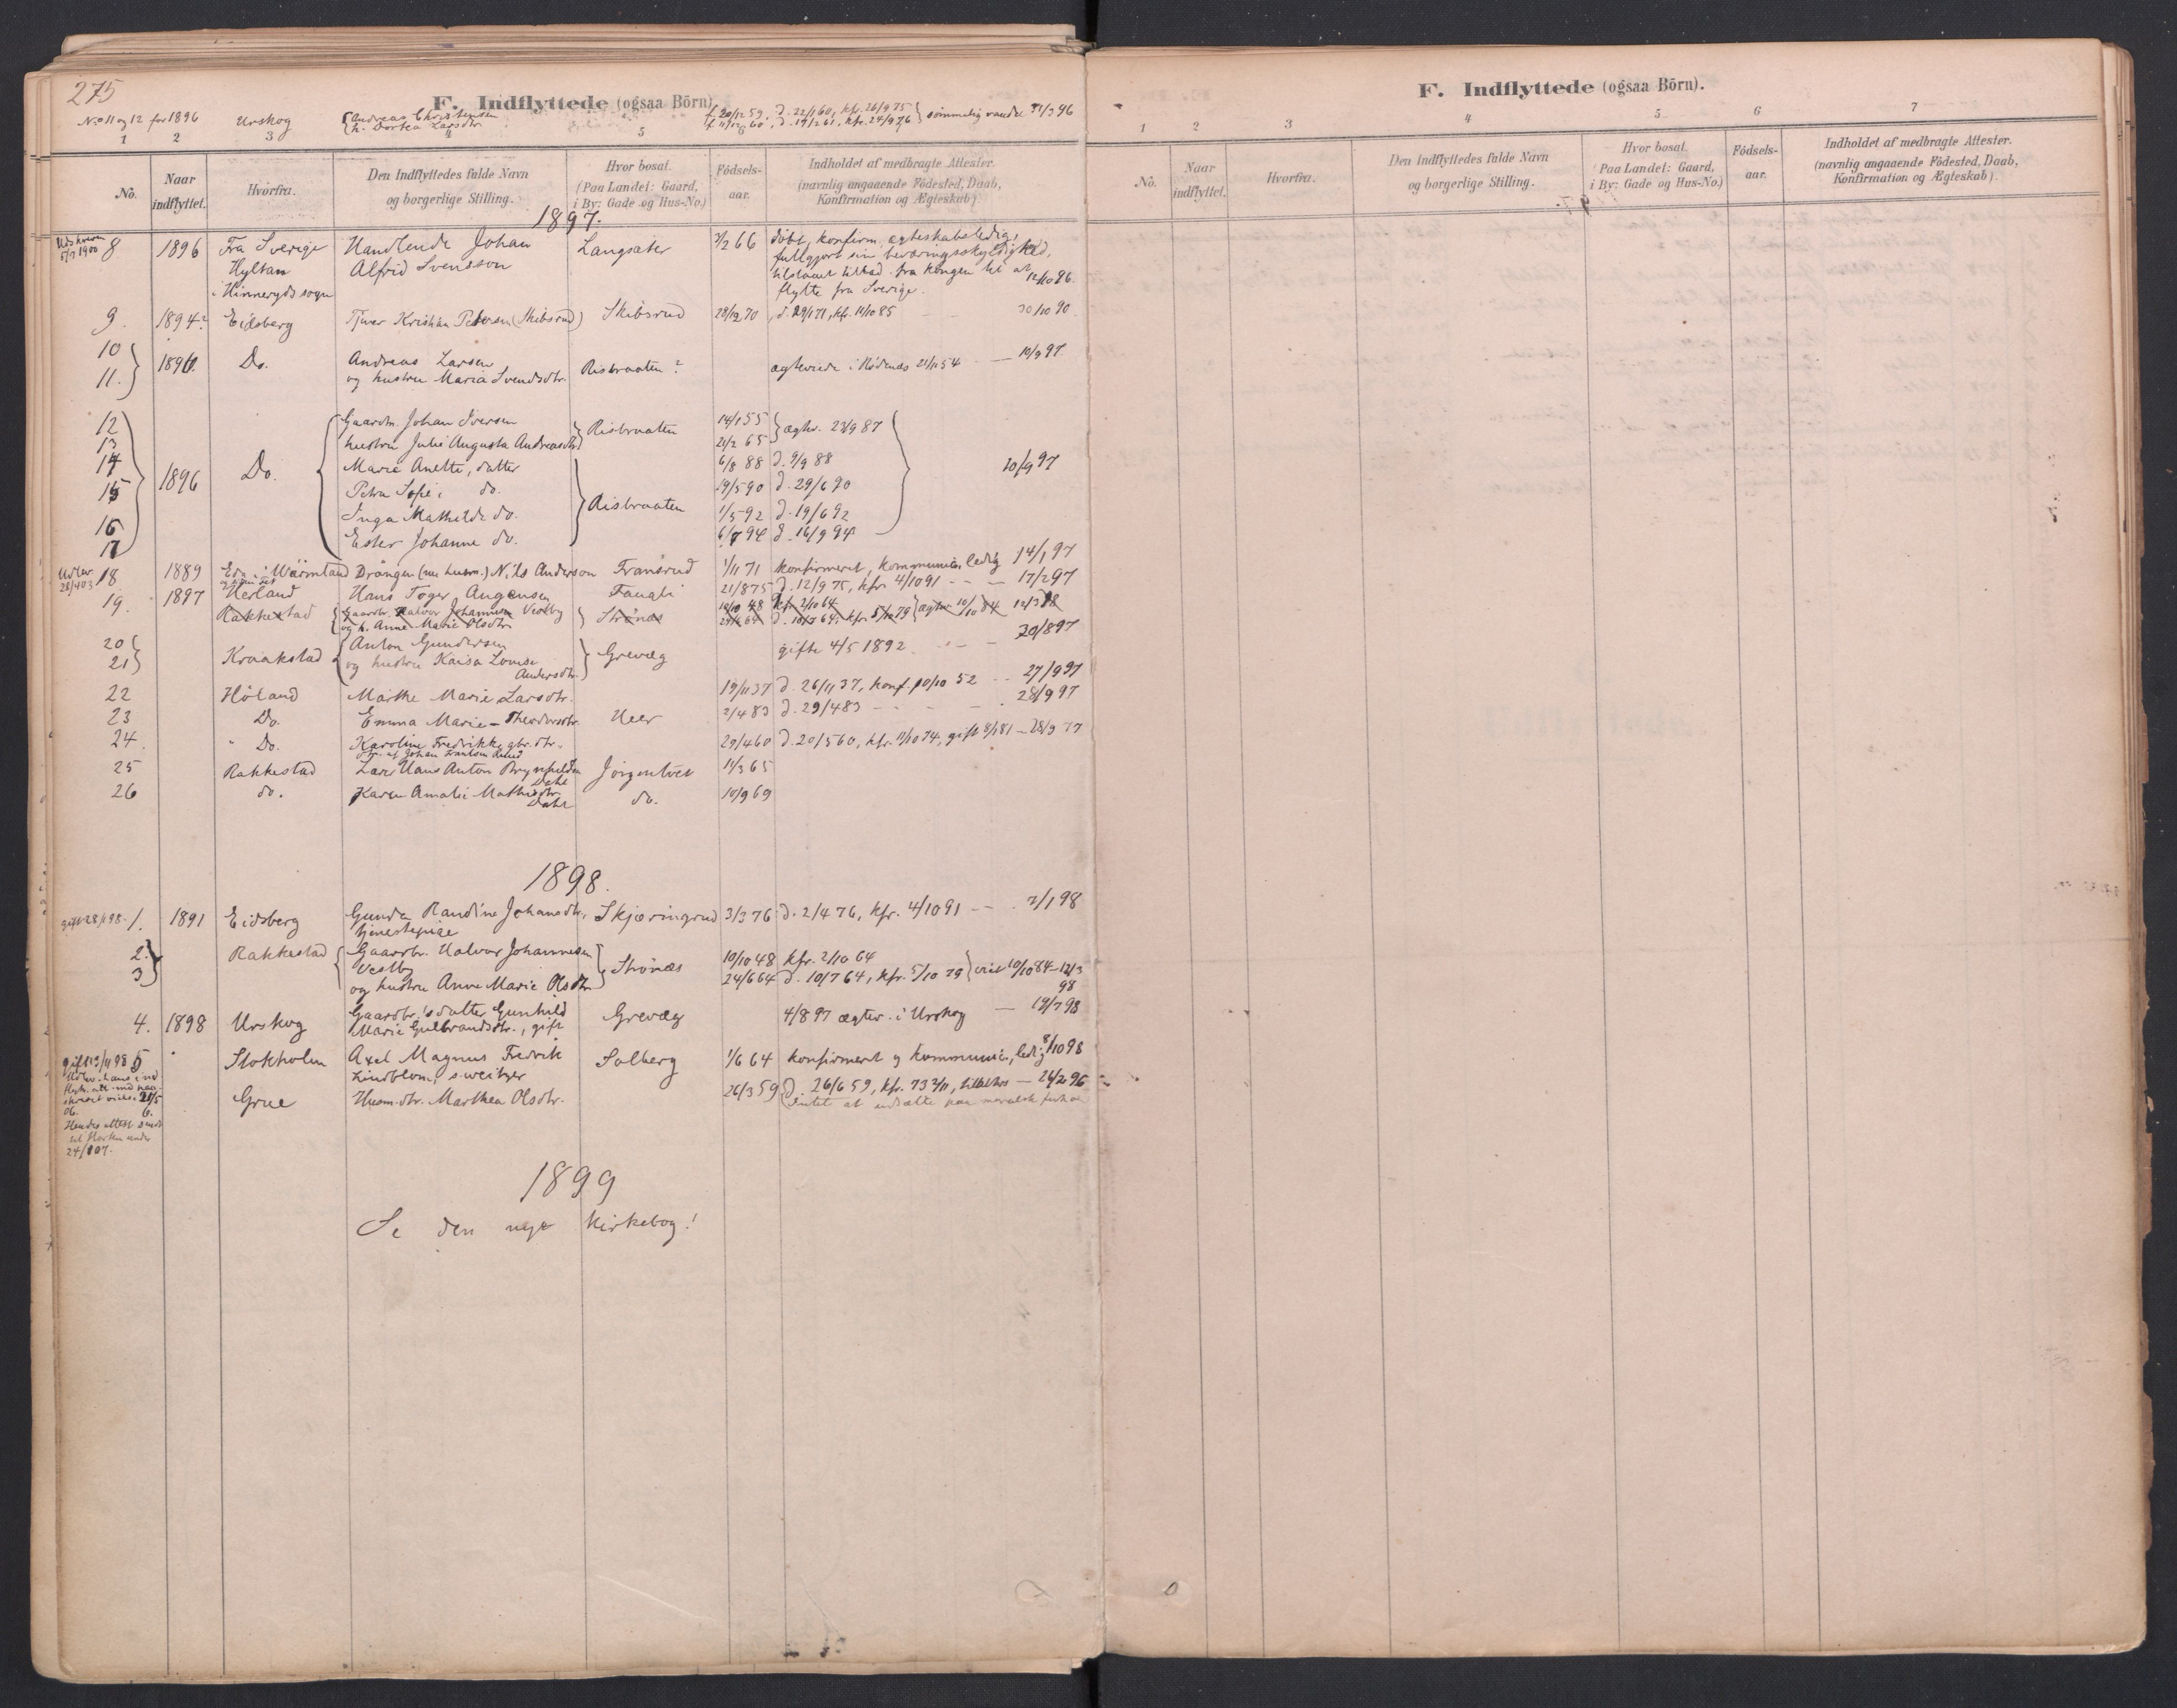 275
F. Indflyttede (ogsaa Börn).
No 11 og 12 for 1896 Urskog Andreas Christensen f. 20/12 59, d. 22/1 60, kfr. 26/9 75 sømmelig vandel 31/3 96
h. Dortea Larsdtr. f. 11/12 60, d. 19/2 61, kfr. 24/9 76
1 2 3 4 5
No. Naar indflyttet. Hvorfra. Den Indflyttedes fulde Navn og borgerlige Stilling. Hvor bosat. (Paa Landet: Gaard, i By: Gade og Hus-No.) Födsels-aar. Indholdet af medbragte Attester. (navnlig angaaende Födested, Daab, Konfirmation og Ægteskab)
1897.
Udskreven 5/7 1900 8 1896 Fra Sverige Handlende Johan Langsæter 2/2 66 døbt, konfirm. ægteskabsledig,
Hyltan Alfrid Svensson fullgjort sin beværingsskyldighed,
i Hinneryds sogn tilstaaet tillad. fra kongen til at
flytte fra Sverige. 12/10 96.
9. 1894? Eidsberg Tjener Kristian Petersen (Skibsrud) Skibsrud 28/12 70 d. 29/1 71, kfr. 11/10 85 30/10 90
10
11. 1896. Do. Andreas Larsen Risbraaten? ægteviede i Rødenæs 21/11 54 — 10/9 97
og hustru Maria Svendsdtr.
12 Gaardm. Johan Iversen Risbraaten 14/1 55 ægtev. 23/9 87
13 hustru Julie Augusta Andreasdtr. 21/2 65
14 Marie Anette, datter 6/8 88 d. 9/9 88 10/9 97
15 1896 Do. Petra Sofie, do. 19/5 90 d. 29/6 90
16 Inga Mathilde do. Risbraaten 1/5 92 d. 19/6 92
17 Ester Johanne do. 6/7 94 d. 16/9 94
Udlev. 28/4 03 18 1889 Eda i Wärmland Drängen (nu husm.) Nils Anderson Fransrud 1/11 71 konfirmeret, kommunic., ledig 14/1 97
19. 1897 Herland Hans Toger Augensen Faugli 21/8 75 d. 12/9 75, kfr. 4/10 91 — — 17/2 97
Rakkestad Gaardbr. Halvor Johannesen Vestby Strønæs 10/10 48 kfr. 2/10 64 ægtev. 10/10 84 12/3 98
og h. Anne Marie Olsdtr. 24/6 64 d. 10/7 64, kfr. 5/10 79
20 Anton Gundersen 20/8 97
21 Kraakstad og hustru Kaisa Lovise Grevæg gifte 4/5 1892
Andersdtr.
22 Høland Marthe Marie Larsdtr. 19/11 37 d. 26/11 37, konf. 10/10 52 27/9 97
23 Do. Emma Marie Theodorsdtr. Heer 2/4 83 d. 29/4 83 28/9 97
24. Do. Karoline Fredrikke gbr. dtr. 29/4 60 d. 20/5 60, kfr. 11/10 74, gift 8/1 81 — 28/9 97
25 Rakkestad Lars Hans Anton Brynhildsen Dahl Jörgentvet 11/3 65
26 do. Karen Amalie Mathisdtr. Dahl do. 10/9 69
1898.
gift 28/1 98. 1. 1891 Eidsberg Gunda Randine Johansdtr. Skjæringrud 3/3 76 d. 2/4 76, kfr. 4/10 91 — 7/1 98
tjenestepige
2. Rakkestad Gaardbr. Halvor Johannesen 10/10 48 kfr. 2/10 64
3 Vestby Strönæs 24/6 64 d. 10/7 64, kfr. 5/10 79 viet 10/10 84 — 12/3 98
og hustru Anne Marie Olsdtr.
4. 1898 Urskog Gaardbr.'s datter Gunhild Grevæg 4/8 97 ægtev. i Urskog — 19/7 98
Marie Gulbrandsdtr., gift
gift 13/11 98 5 Stokholm Axel Magnus Fredrik Solberg 1/6 64 konfirmeret og kommunic., ledig 8/10 98
Lindblom, sweitzer
6. Grue Husm.dtr. Marthea Olsdtr. 26/3 59 d. 26/6 59, kfr. 73 2/11, — 24/2 96
Hendes attest sendt
24/1 07.
1899
Se den nye kirkebog!
F. Indflyttede (ogsaa Börn).
1 2 3 4 5 6 7
No. Naar indflyttet. Hvorfra. Den Indflyttedes fulde Navn og borgerlige Stilling. Hvor bosat. (Paa Landet: Gaard, i By: Gade og Hus-No.) Födsels-aar. Indholdet af medbragte Attester. (navnlig angaaende Födested, Daab, Konfirmation og Ægteskab).